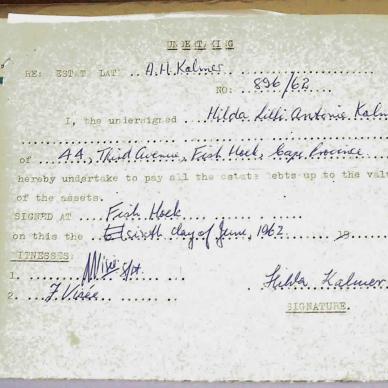 UNDERTAKING
RE: ESTATE LATE A.H. Kalmer
NO: 896/62
I, the undersigned Hilda Lilli Antonie Kalm
of 44, Third Avenue, Fish Hoek, Cape Province
hereby undertake to pay all the estate debts up to the valu
of the assets.
SIGNED AT Fish Hoek
on this the sixth day of June, 1962 19
WITNESSES:
1.
2. F. Visée
Hilda Kalmer
SIGNATURE.